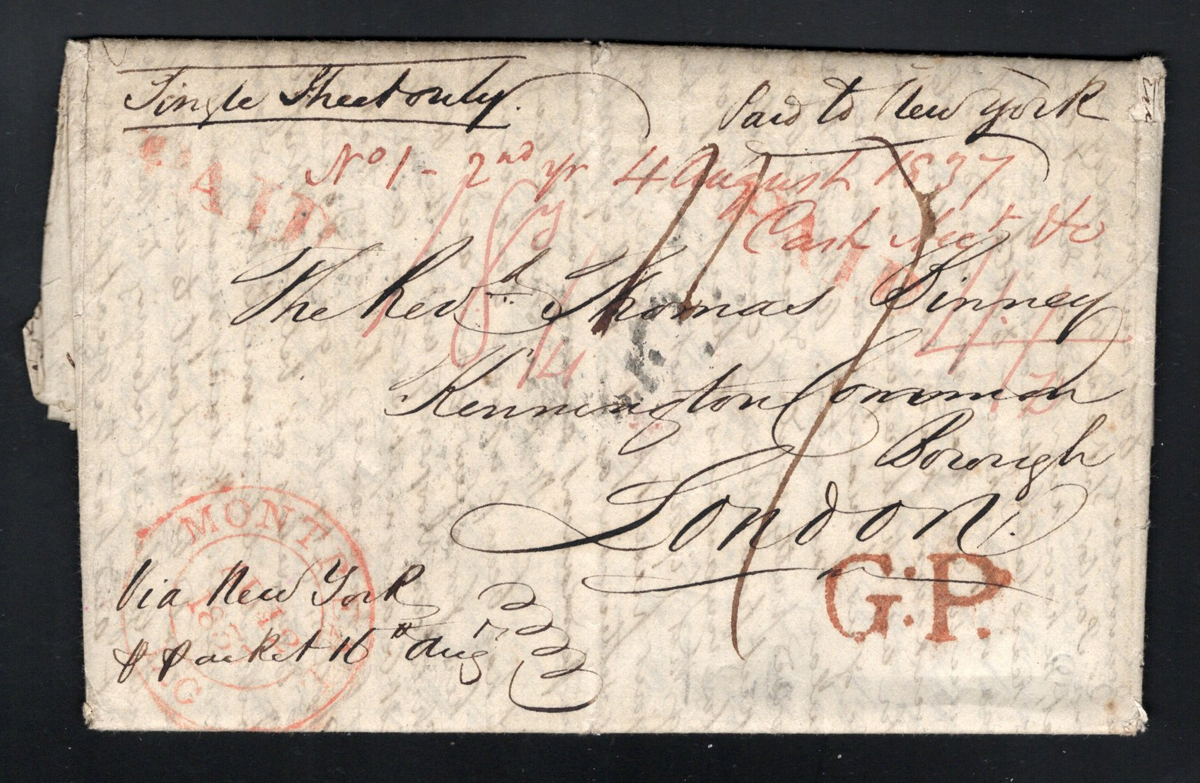 Single Sheet only.
Paid to New York
PAID
No 1 - 2nd yr 4 August 1837
Cash Acct &c
PAID
The Revd. Thomas Binney
Kennington Common
Borough
London.
G:P.
MONTREAL
Via New York
p packet 16th Augt